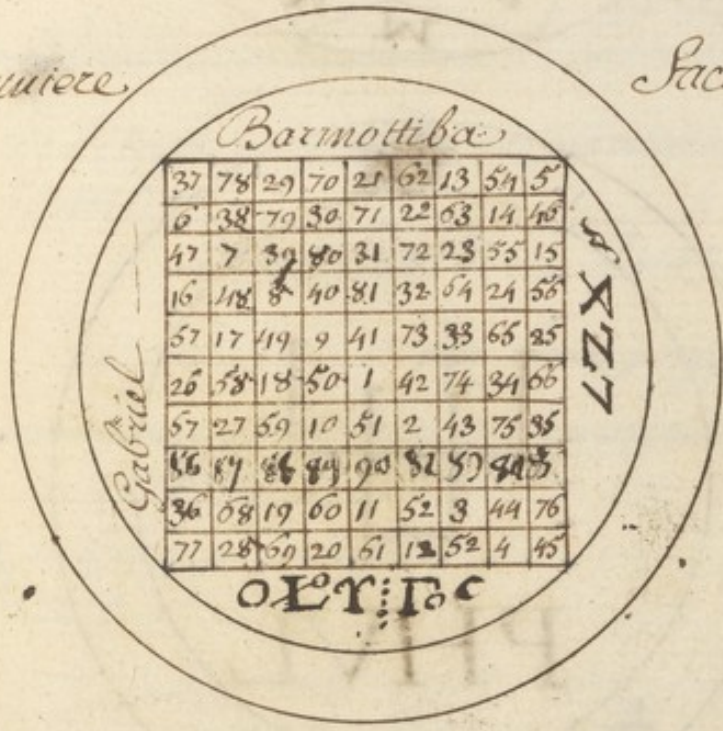 Barmottiba
37 78 29 70 21 62 13 54 5
6 38 79 30 71 22 63 14 46
47 7 39 80 31 72 23 55 15
16 48 8 40 81 32 64 24 56
57 17 49 9 41 73 33 65 25
26 58 18 50 1 42 74 34 66
57 27 59 10 51 2 43 75 35
36 68 19 60 11 52 3 44 76
77 28 69 20 61 12 52 4 45
Gabriel